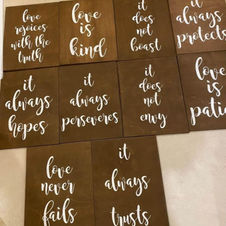 love
rejoices
with the
truth
love
is
kind
it
does
not
boast
it
always
protects
it
always
hopes
it
always
perseveres
it
does
not
envy
love
is
love
never
fails
it
always
trusts